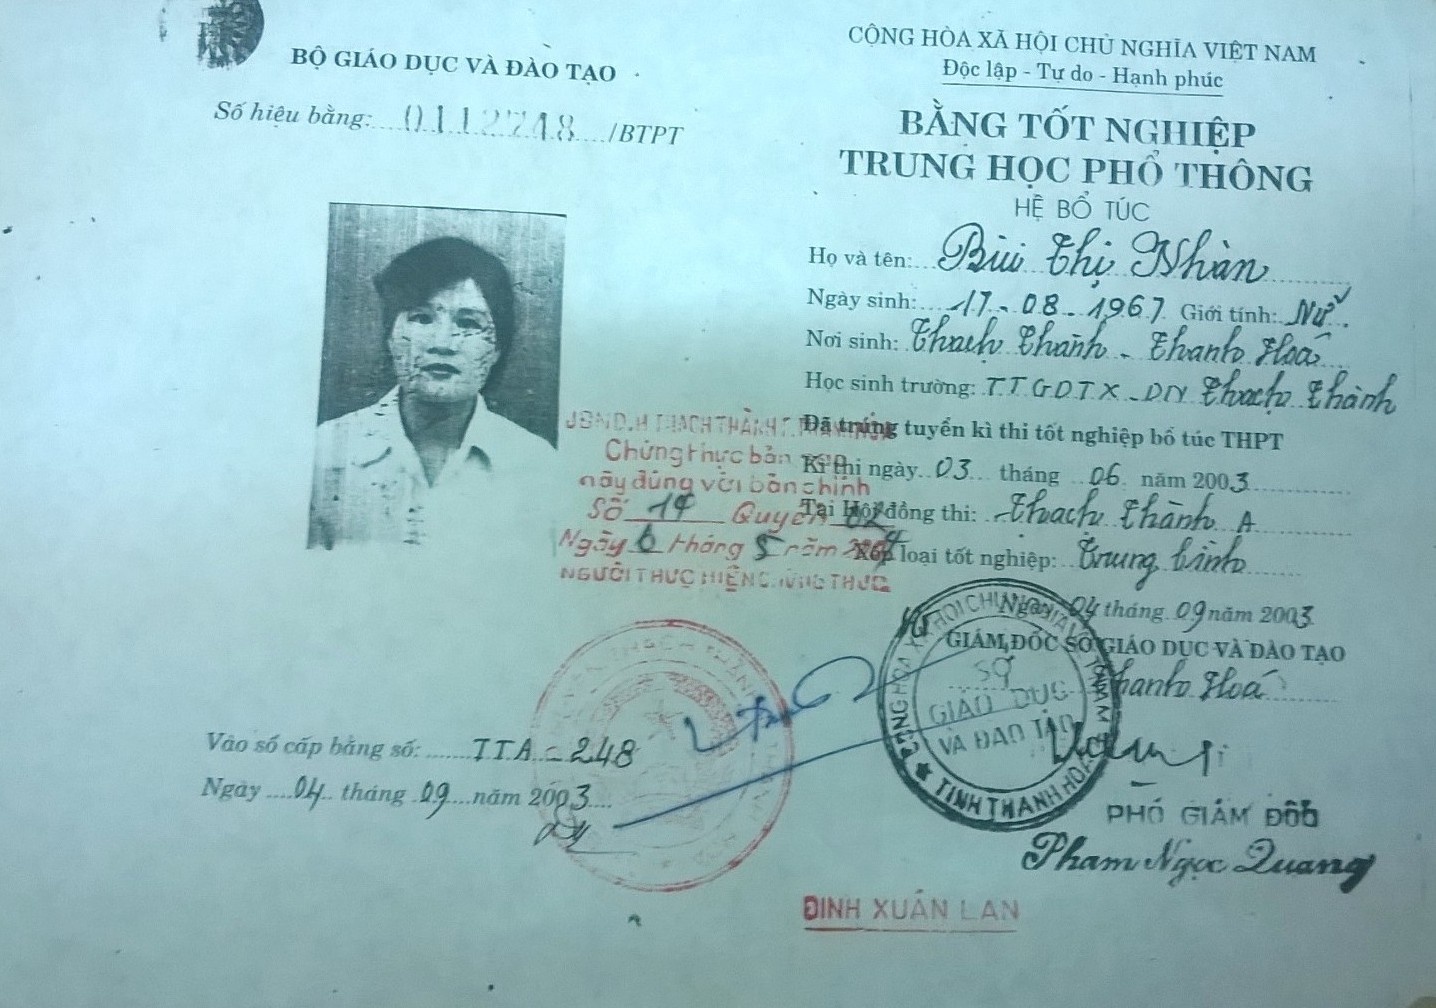 BỘ GIÁO DỤC VÀ ĐÀO TẠO
Số hiệu bằng: 0112748 /BTPT
CỘNG HÒA XÃ HỘI CHỦ NGHĨA VIỆT NAM
Độc lập - Tự do - Hạnh phúc
BẰNG TỐT NGHIỆP
TRUNG HỌC PHỔ THÔNG
HỆ BỔ TÚC
Họ và tên: Bùi Thị Nhàn
Ngày sinh: 17-08-1967 Giới tính: Nữ
Nơi sinh: Thạch Thành - Thanh Hoá
Học sinh trường: TTGDTX-DN Thạch Thành
Đã trúng tuyển kì thi tốt nghiệp bổ túc THPT
Kì thi ngày 03 tháng 06 năm 2003
Tại Hội đồng thi: Thạch Thành A
Xếp loại tốt nghiệp: Trung bình
Ngày 04 tháng 09 năm 2003
GIÁM ĐỐC SỞ GIÁO DỤC VÀ ĐÀO TẠO
Thanh Hoá
PHÓ GIÁM ĐỐC
Phạm Ngọc Quang
UBND.H THẠCH THÀNH T.
Chứng thực bản
này đúng với bản chính
Số 19 Quyển
Ngày 6 tháng 5 năm
NGƯỜI THỰC HIỆN CHỨNG THỰC
CỘNG HÒA XÃ HỘI CHỦ NGHĨA VIỆT NAM
SỞ
GIÁO DỤC
VÀ ĐÀO TẠO
★ TỈNH THANH HOÁ
Vào sổ cấp bằng số: TTA-248
Ngày 04 tháng 09 năm 2003
ĐINH XUÂN LAN